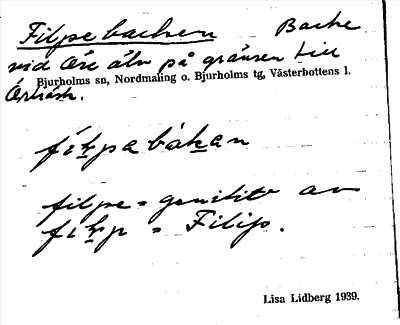 Filpebacken Backe
vid Öre älv på gränsen till
Bjurholms sn, Nordmaling o. Bjurholms tg, Västerbottens l.
Örträsk.
fílpabákan
filpe = genitiv av
filp = Filip.
Lisa Lidberg 1939.